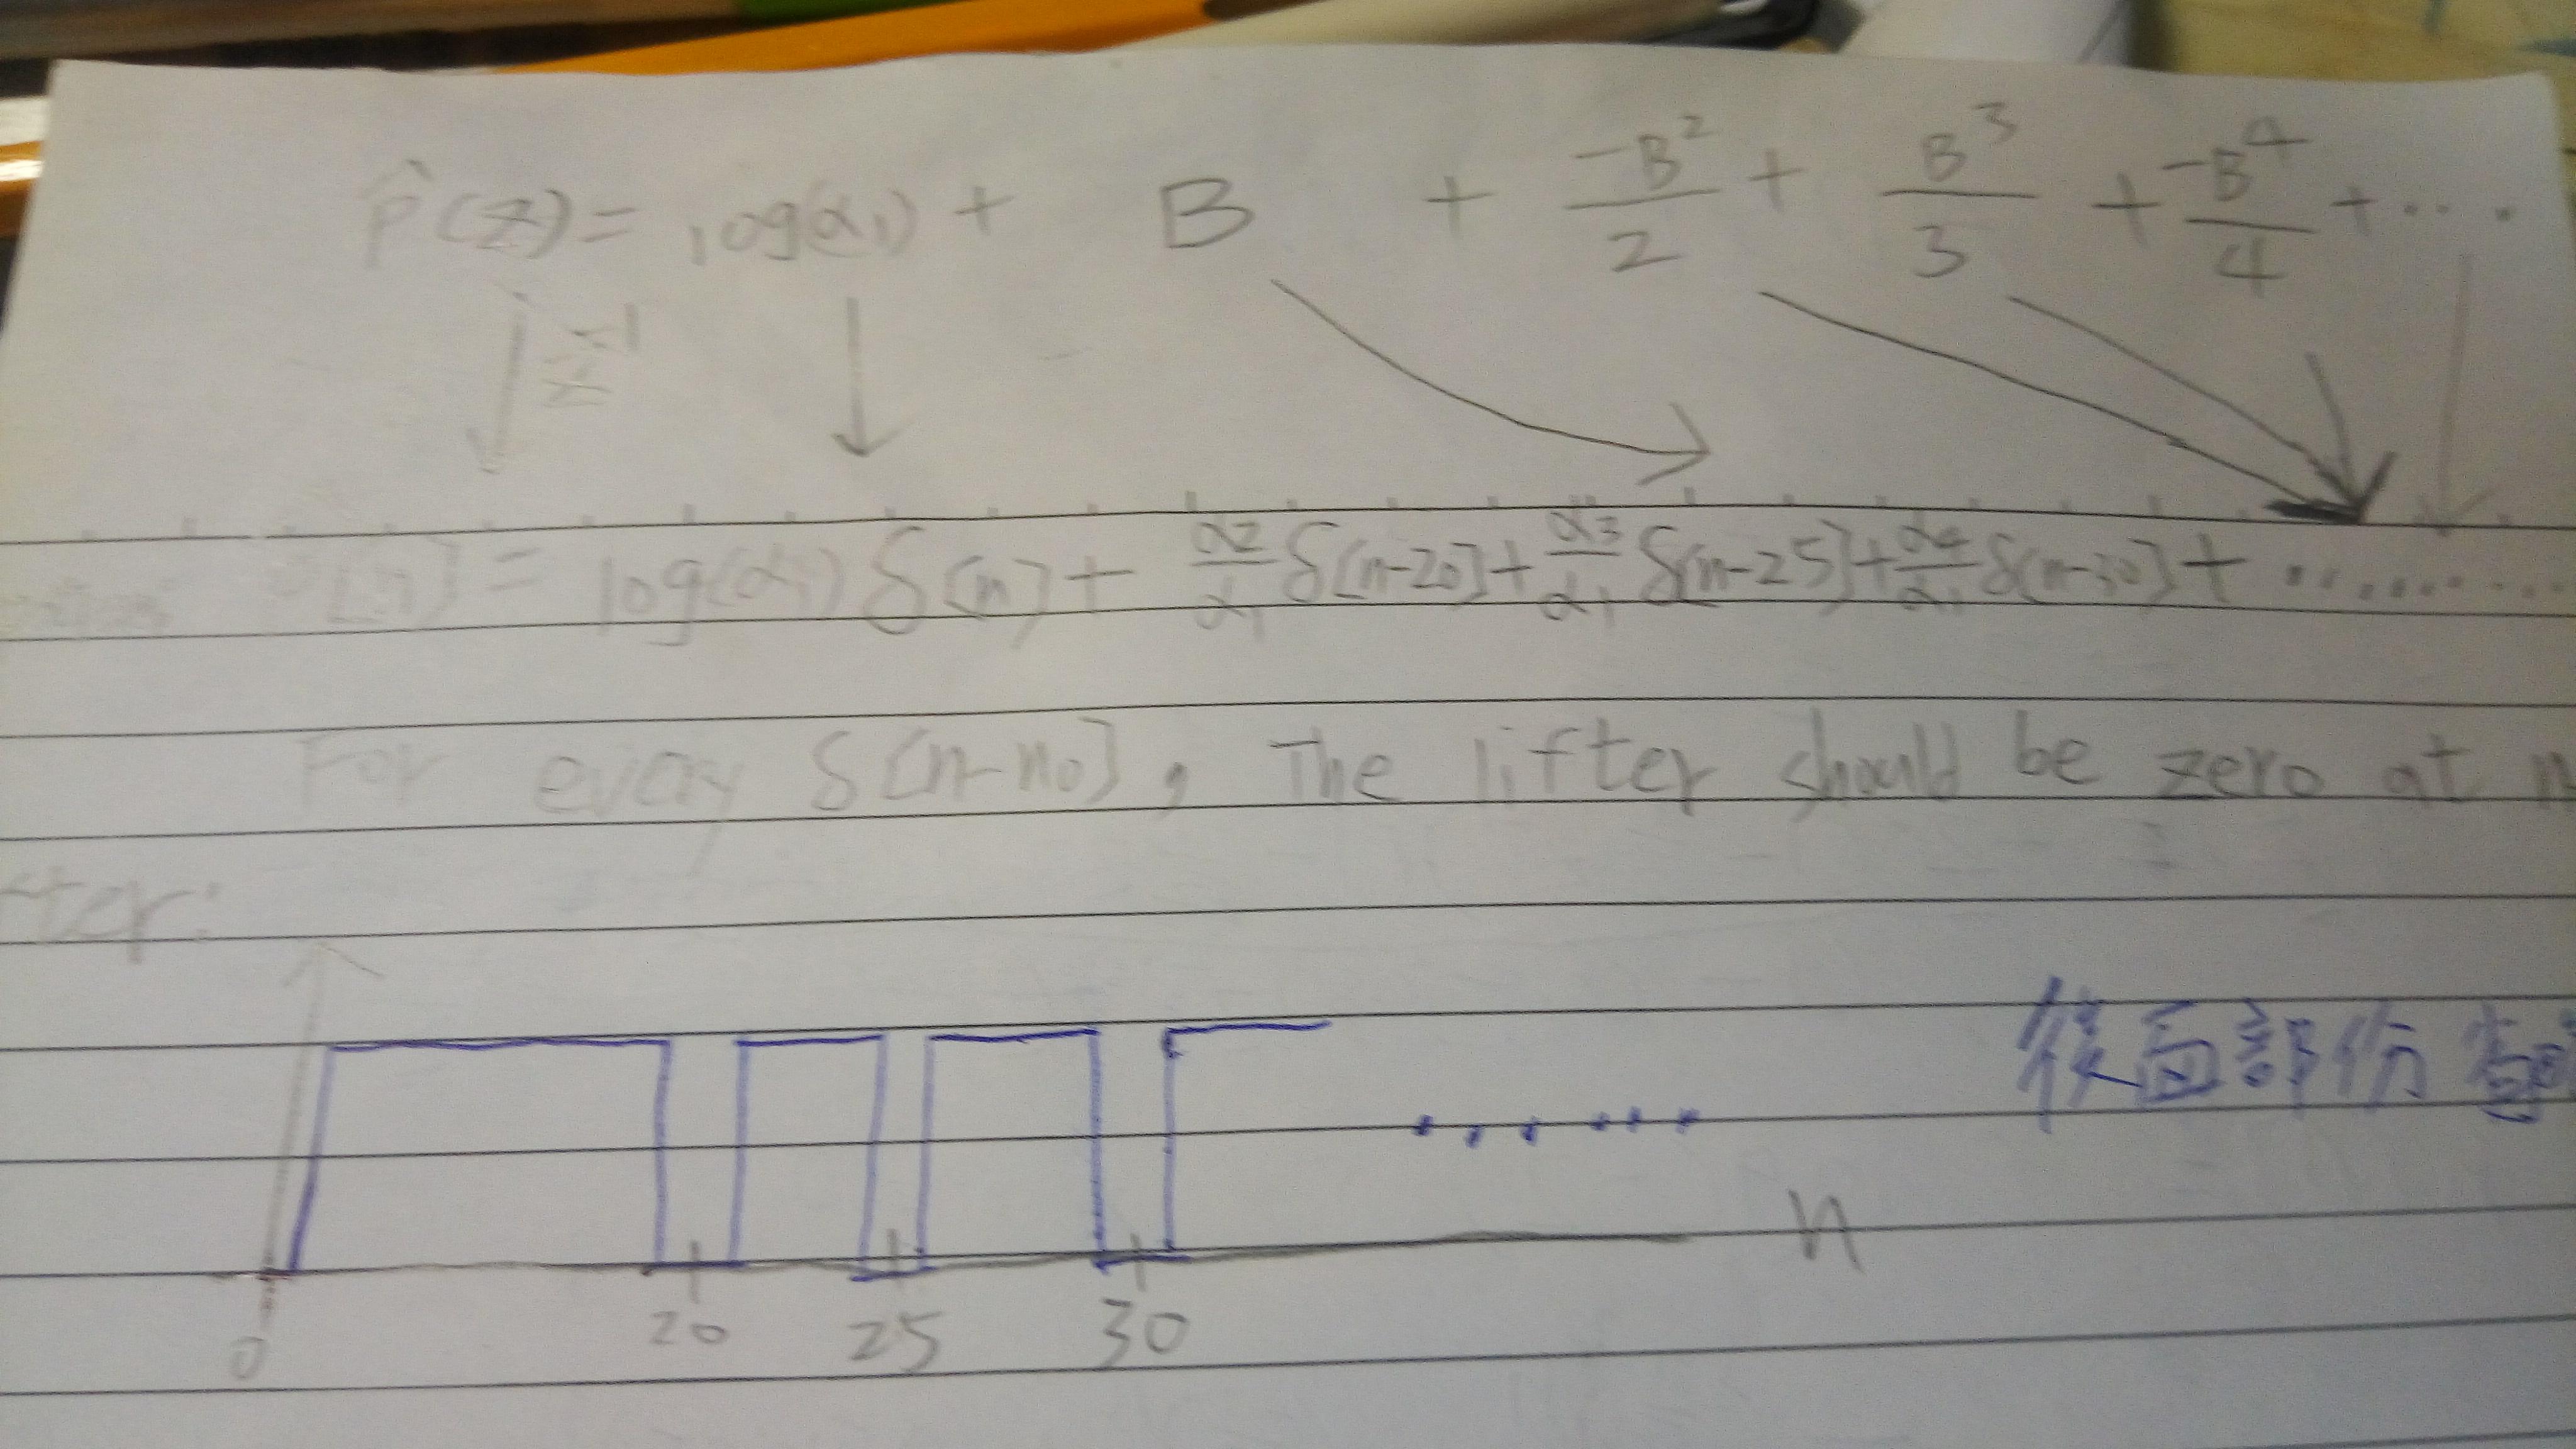 p̂(z) = log(α₁) + B + -B²/2 + B³/3 + -B⁴/4 + ....
z⁻¹
[n] = log(α₁) δ[n] + α₂/α₁ δ[n-20] + α₃/α₁ δ[n-25] + α₄/α₁ δ[n-30] + .........
For every δ[n-n₀], The lifter should be zero at n
ter:
後面部份
n
0 20 25 30